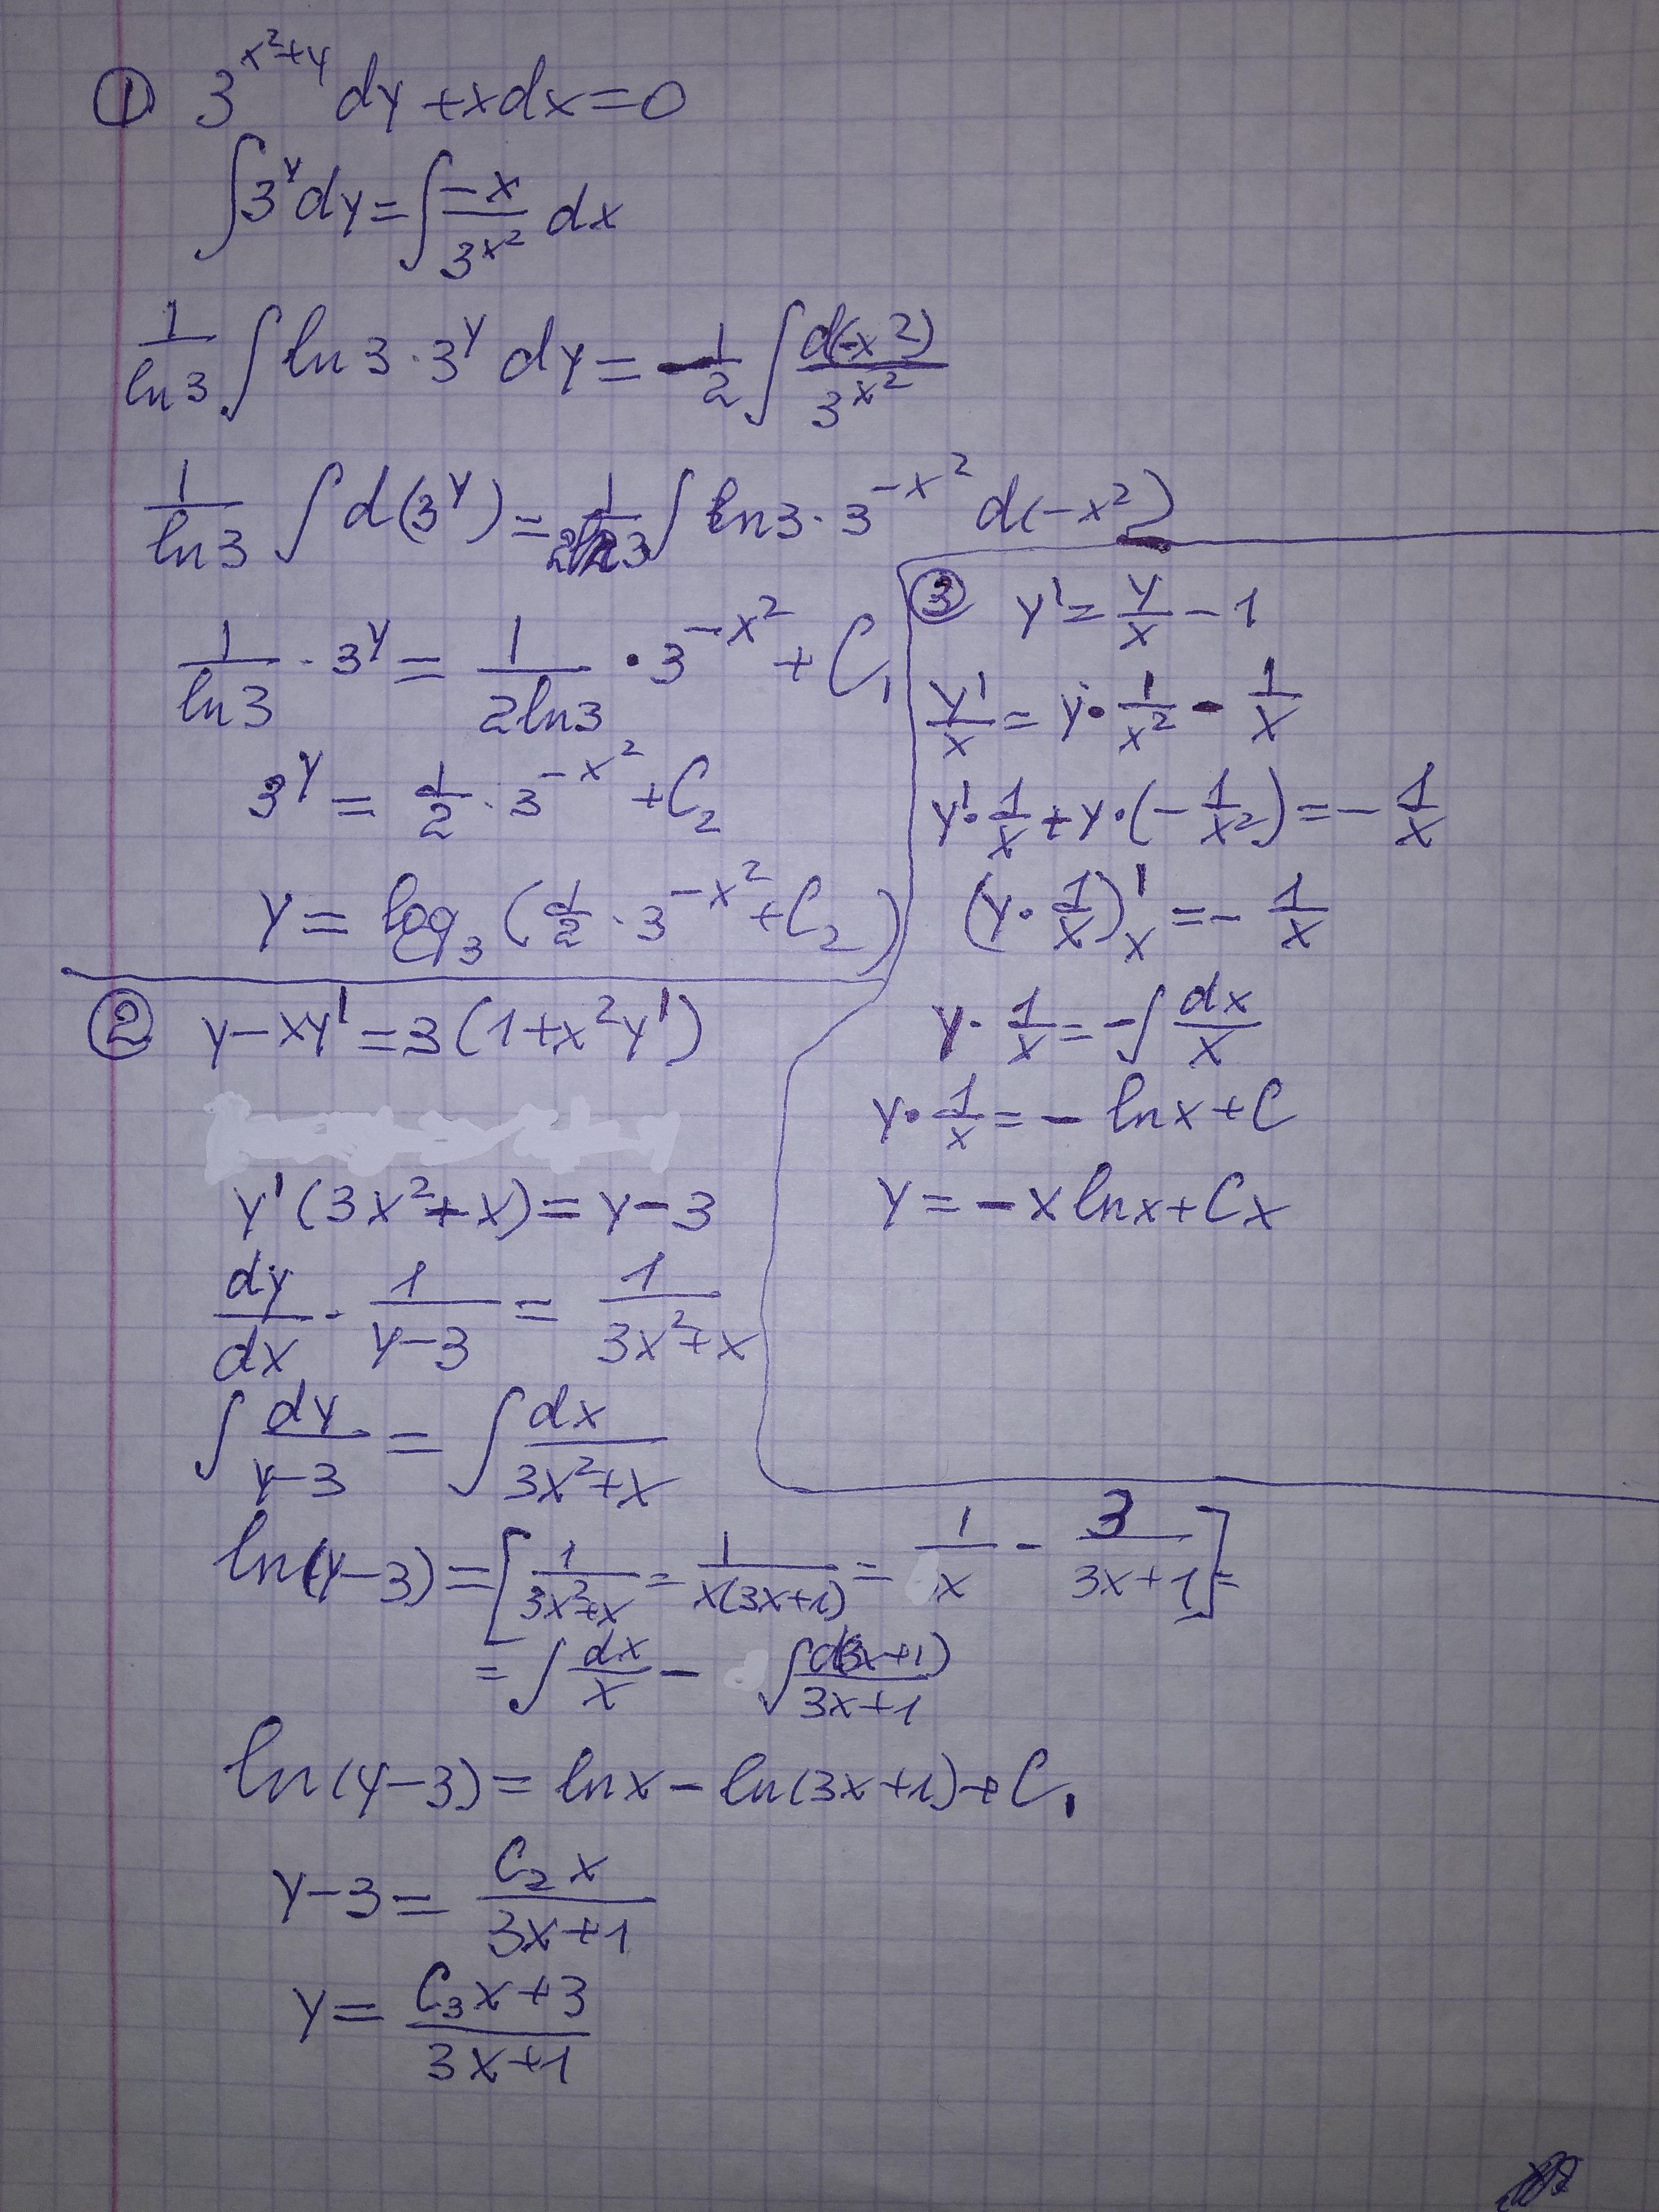 ① 3^(x²+y) dy + x dx = 0
∫3^y dy = ∫ -x/3^(x²) dx
1/ln3 ∫ ln3 · 3^y dy = 1/2 ∫ d(-x²)/3^(x²)
1/ln3 ∫ d(3^y) = 1/(2ln3) ∫ ln3 · 3^(-x²) d(-x²)
1/ln3 · 3^y = 1/(2ln3) · 3^(-x²) + C₁
3^y = 1/2 · 3^(-x²) + C₂
y = log₃(1/2 · 3^(-x²) + C₂)
② y - xy' = 3(1 + x²y')
y'(3x² + x) = y - 3
dy/dx · 1/(y-3) = 1/(3x²+x)
∫ dy/(y-3) = ∫ dx/(3x²+x)
ln(y-3) = [1/(3x²+x) = 1/(x(3x+1)) = 1/x - 3/(3x+1)] =
= ∫ dx/x - ∫ d(3x+1)/(3x+1)
ln(y-3) = lnx - ln(3x+1) + C₁
y - 3 = C₂x/(3x+1)
y = (C₃x+3)/(3x+1)
③ y' = y/x - 1
y'/x = y · 1/x² - 1/x
y' · 1/x + y · (-1/x²) = - 1/x
(y · 1/x)'ₓ = - 1/x
y · 1/x = -∫ dx/x
y · 1/x = - lnx + C
y = -x lnx + Cx